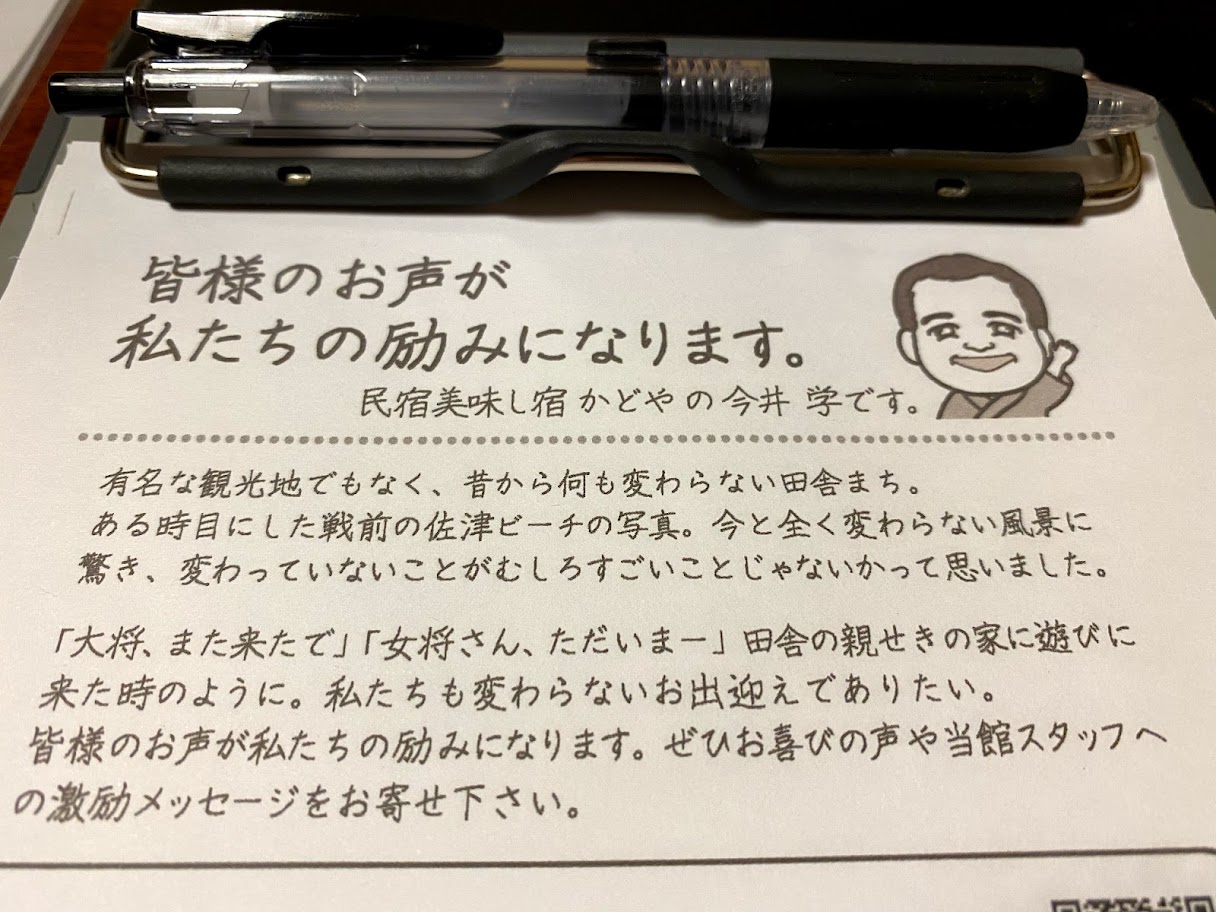 皆様のお声が
私たちの励みになります。
民宿美味し宿 かどや の 今井 学です。
有名な観光地でもなく、昔から何も変わらない田舎まち。
ある時目にした戦前の佐津ビーチの写真。今と全く変わらない風景に
驚き、変わっていないことがむしろすごいことじゃないかって思いました。
「大将、また来たで」「女将さん、ただいまー」田舎の親せきの家に遊びに
来た時のように。私たちも変わらないお出迎えでありたい。
皆様のお声が私たちの励みになります。ぜひお喜びの声や当館スタッフへ
の激励メッセージをお寄せ下さい。